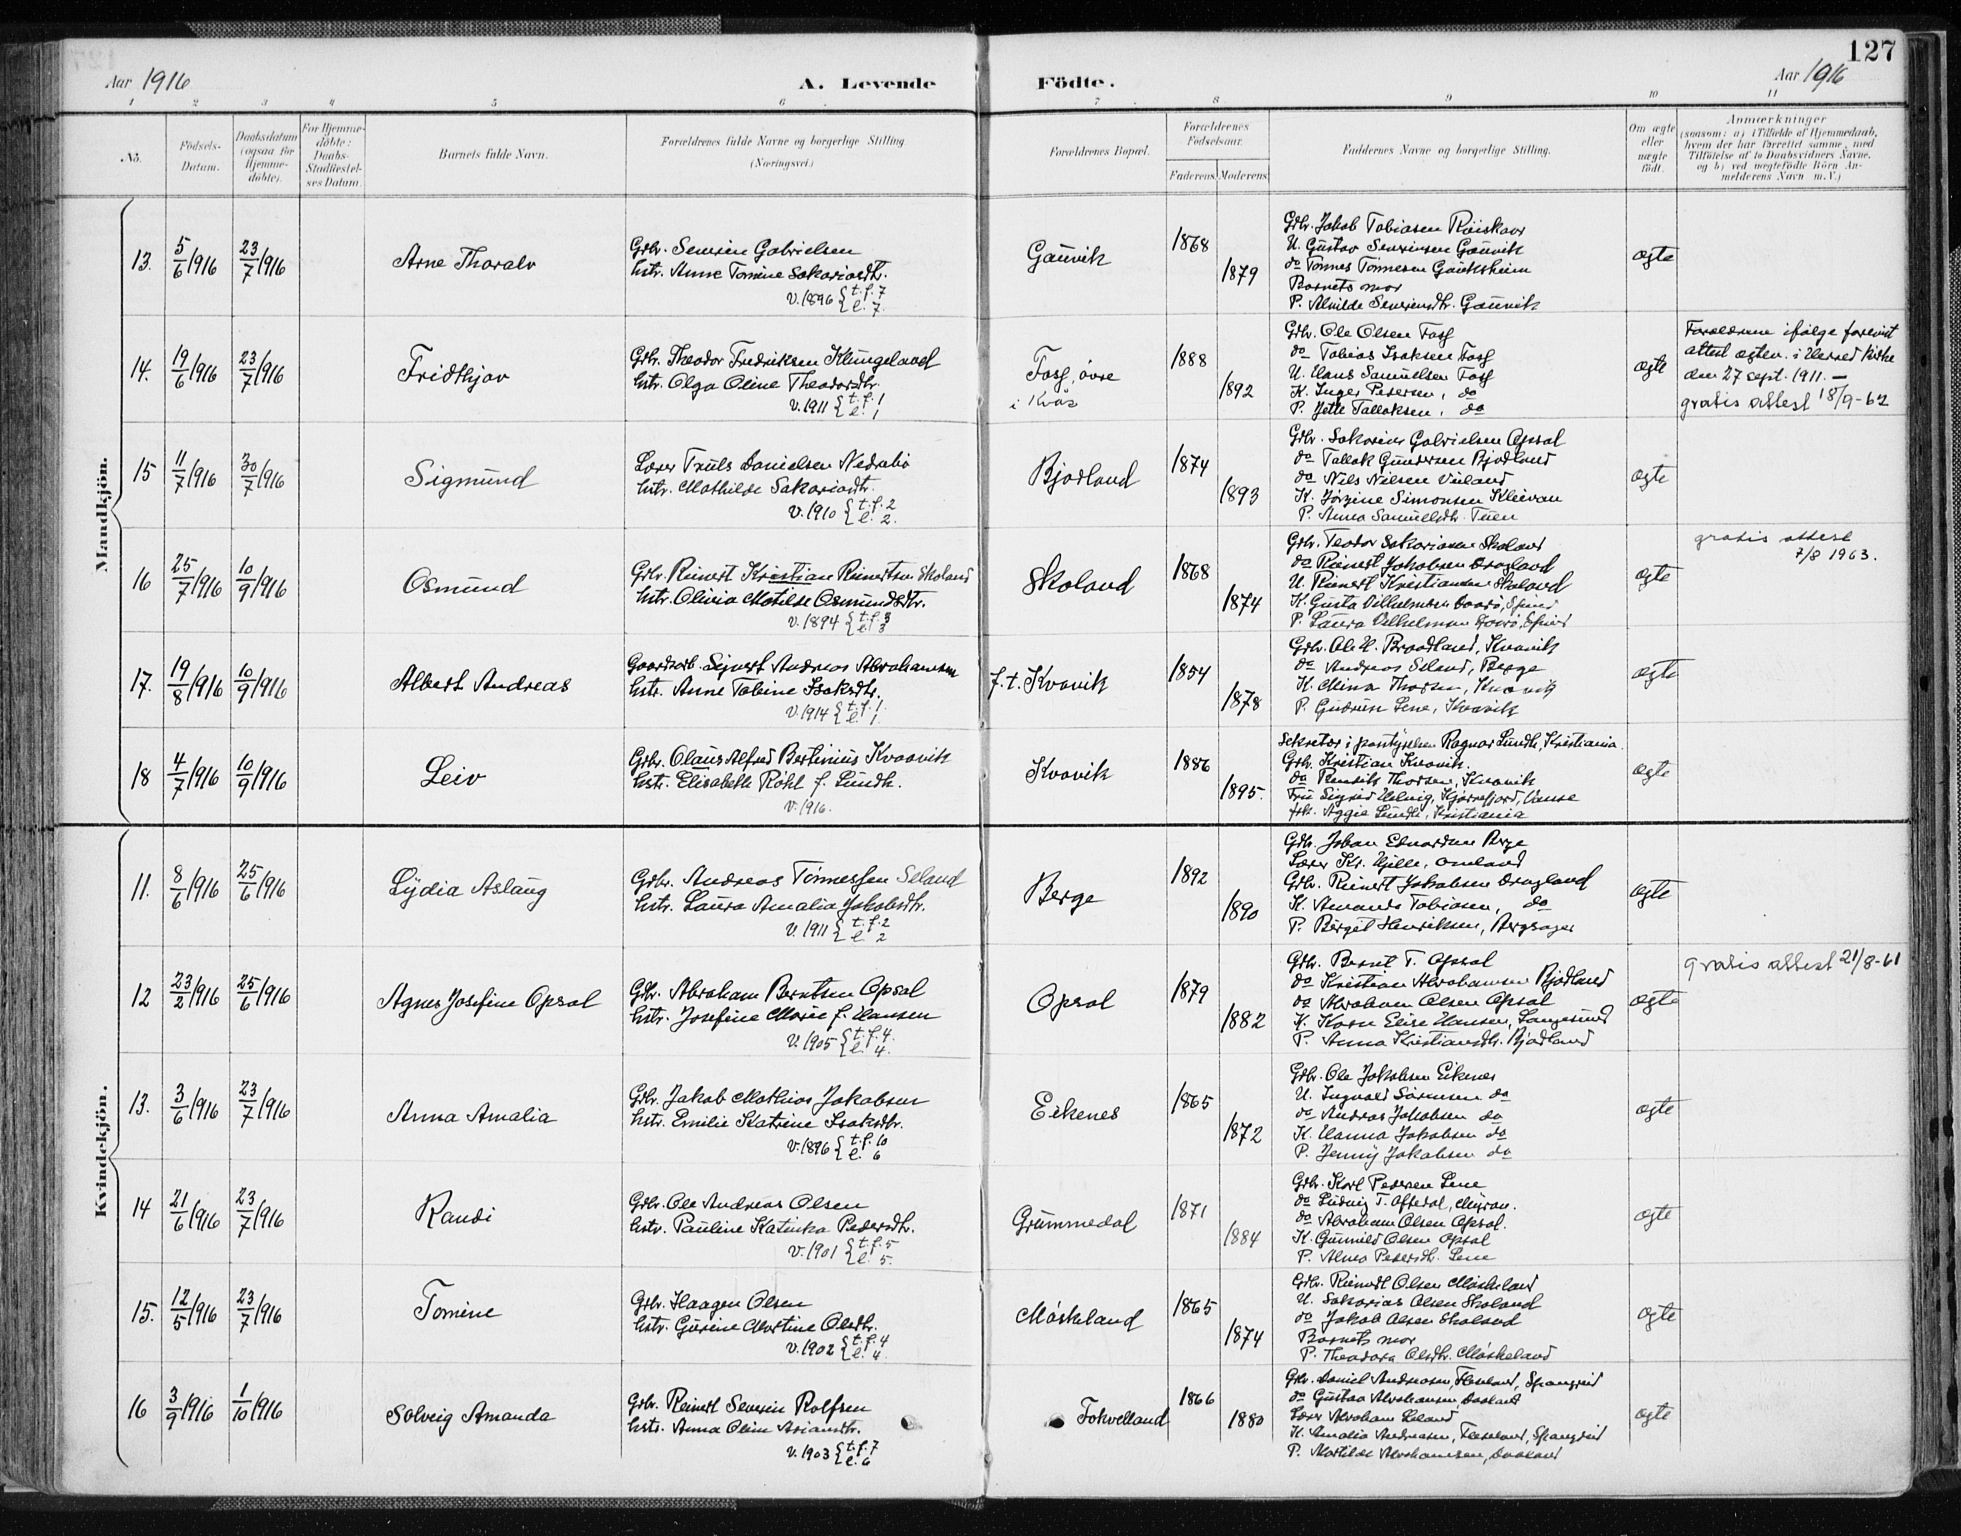 127
Aar 1916
A. Levende
Fødte.
Aar 1916
1 2 3 4 5 6 7 8 9 10 11
No.
Fødsels-
Datum.
Daabsdatum
(ogsaa for
Hjemme-
døbte).
For Hjemme-
døbte:
Daabs-
Stadfæstel-
ses Datum.
Barnets fulde Navn.
Forældrenes fulde Navne og borgerlige Stilling
(Næringsvei.)
Forældrenes Bopæl.
Forældrenes
Fødselsaar.
Faderens. Moderens.
Faddernes Navne og borgerlige Stilling.
Om ægte
eller
uægte
født.
Anmærkninger
(saasom: a) i Tilfælde af Hjemmedaab,
hvem der har forrettet samme, med
Tilføielse af to Daabsvidners Navne,
og b) ved uægtefødte Børn An-
melderens Navn m. V.)
Mandkjøn.
13. 5/6 1916 23/7 1916 Arne Thoralv
Gdbr. Severin Gabrielsen
hstr. Anne Tomine Sakariasdtr.
v. 1896 { t. f. 7
{ l. 7.
Gauvik 1868 1879
Gdbr. Jakob Tobiasen Røiskaar
U. Gustav Severinsen Gauvik
do Tønnes Tønnesen Gauksheim
Barnets mor
P. Alvilde Severinsdtr. Gauvik
ægte
14. 19/6 1916 23/7 1916 Fridthjov
Gdbr. Theodor Fredriksen Klungeland
hstr. Olga Oline Theodorsdtr.
v. 1911 { t. f. 1
{ l. 1
Foss, øvre
i Kvås
1888 1892
Gdbr. Ole Olsen Foss
do Tobias Isaksen Foss
U. Hans Samuelsen Foss
K. Inger Pedersen, do
P. Jette Tallaksen, do
ægte
Forældrene ifølge forevist
attest ægtev. i Herred kirke
den 27 sept. 1911. —
gratis attest 18/9-62
15 11/7 1916 30/7 1916 Sigmund
Lærer Truls Danielsen Nedrebø
hstr. Mathilde Sakariasdtr.
v. 1910 { t. f. 2
{ l. 2.
Bjodland 1874 1893
Gdbr. Sakarias Gabrielsen Opsal
do Tallak Gundersen Bjodland
do Nils Nilsen Viland
K. Jørgine Simonsen Kleivan
P. Anna Samuelsdtr. Tuen
ægte
16 25/7 1916 10/9 1916 Osmund
Gdbr. Reinert Kristian Reinertsen Skoland
hstr. Olivia Matilde Osmundsdtr.
v. 1894 { t. f. 3
{ l. 3
Skoland 1868 1874
Gdbr. Teodor Sakariasen Skoland
do Reinert Jakobsen Dragland
U. Reinert Kristiansen Skoland
K. Gusta Vilhelmsen
P. Laura Vilhelmsen
ægte
gratis attest
7/8 1963.
17. 19/8 1916 10/9 1916 Albert Andreas
Gaardarb. Sigvart Andreas Abrahamsen
hstr. Anne Tobine Isaksdtr.
v. 1914 { t. f. 1.
{ l. 1
f. t. Kvavik 1854 1878
Gdbr. Ole H. Braadland, Kvavik
do Andreas Seland, Berge
K. Mina Thorsen, Kvavik
P. Gudrun Lene, Kvavik
ægte
18 4/7 1916 10/9 1916 Leiv
Gdbr. Olaus Alfred Bertinius Kvaavik
hstr. Elisabeth Röhl f. Lundh.
v. 1916.
Kvavik 1886 1895.
Sekretær i Ragnar Lundh, Kristiania.
Gdbr. Kristian Kvavik.
do Thorsen, Kvavik
Fru Sigrid Kjørrefjord, Vanse
frk. Aggie Lundh, Kristiania
ægte
Kvindekjøn.
11. 8/6 1916 25/6 1916 Lydia Aslaug
Gdbr. Andreas Tønnessen Seland
hstr. Laura Amalia Jakobsdtr.
v. 1911 { t. f. 2
{ l. 2
Berge 1892 1890
Gdbr. Johan Edvardsen Berge
Lærer Kr. Hille, Omland
Gdbr. Reinert Jakobsen Dragland
K. Amanda Tobiasen, do
P. Bergit Henriksen, Bergsager
ægte
12 23/2 1916 25/6 1916 Agnes Josefine Opsal
Gdbr. Abraham Berntsen Opsal
hstr. Josefine Marie f. Hansen
v. 1905 { t. f. 4.
{ l. 4.
Opsal 1879 1882
Gdbr. Bernt T. Opsal
do Kristian Abrahamsen Bjodland
do Abraham Olsen Opsal
K. Karn Elise Hansen, Langesund
P. Anna Kristiansdtr. Bjodland
ægte
gratis attest 21/8-61
13. 3/6 1916 23/7 1916 Anna Amalia
Gdbr. Jakob Mathias Jakobsen
hstr. Emilie Katrine Isaksdtr.
v. 1896 { t. f. 10
{ l. 6
Eikenes 1865 1872
Gdbr. Ole Jakobsen Eikenes
U. Ingvald Sørensen do
do Andreas Jakobsen do
K. Hanna Jakobsen do
P. Jenny Jakobsen do
ægte
14 21/6 1916 23/7 1916 Randi
Gdbr. Ole Andreas Olsen
hstr. Pauline Katinka Pedersdtr.
v. 1901 { t. f. 5
{ l. 5.
Grummedal 1871 1884
Gdbr. Karl Pedersen Lene
do Ludvig T. Oftedal, Myran.
do Abraham Olsen Opsal.
K. Gunvald Olsen Opsal
P. Alma Pedersdtr. Lene
ægte
15. 12/5 1916 23/7 1916 Tomine
Gdbr. Haagen Olsen
hstr. Gurine Martine Olsdtr.
v. 1902 { t. f. 4
{ l. 4.
Møskeland 1865 1874
Gdbr. Reinert Olsen Møskeland
U. Sakarias Olsen Skoland
do Jakob Olsen Skoland
Barnets mor
P. Theodora Olsdtr. Møskeland
ægte
16 3/9 1916 1/10 1916 Solveig Amanda
Gdbr. Reinert Severin Rolfsen
hstr. Anna Oline Asiasdtr.
v. 1903 { t. f. 7
{ l. 6
Fokvelland 1866 1880
Gdbr. Daniel Andreasen, Spangreid
do Gustav Abrahamsen,
Lærer Abraham Seland
K. Amalia Andreasen, Spangreid
P. Matilde Abrahamsen,
ægte